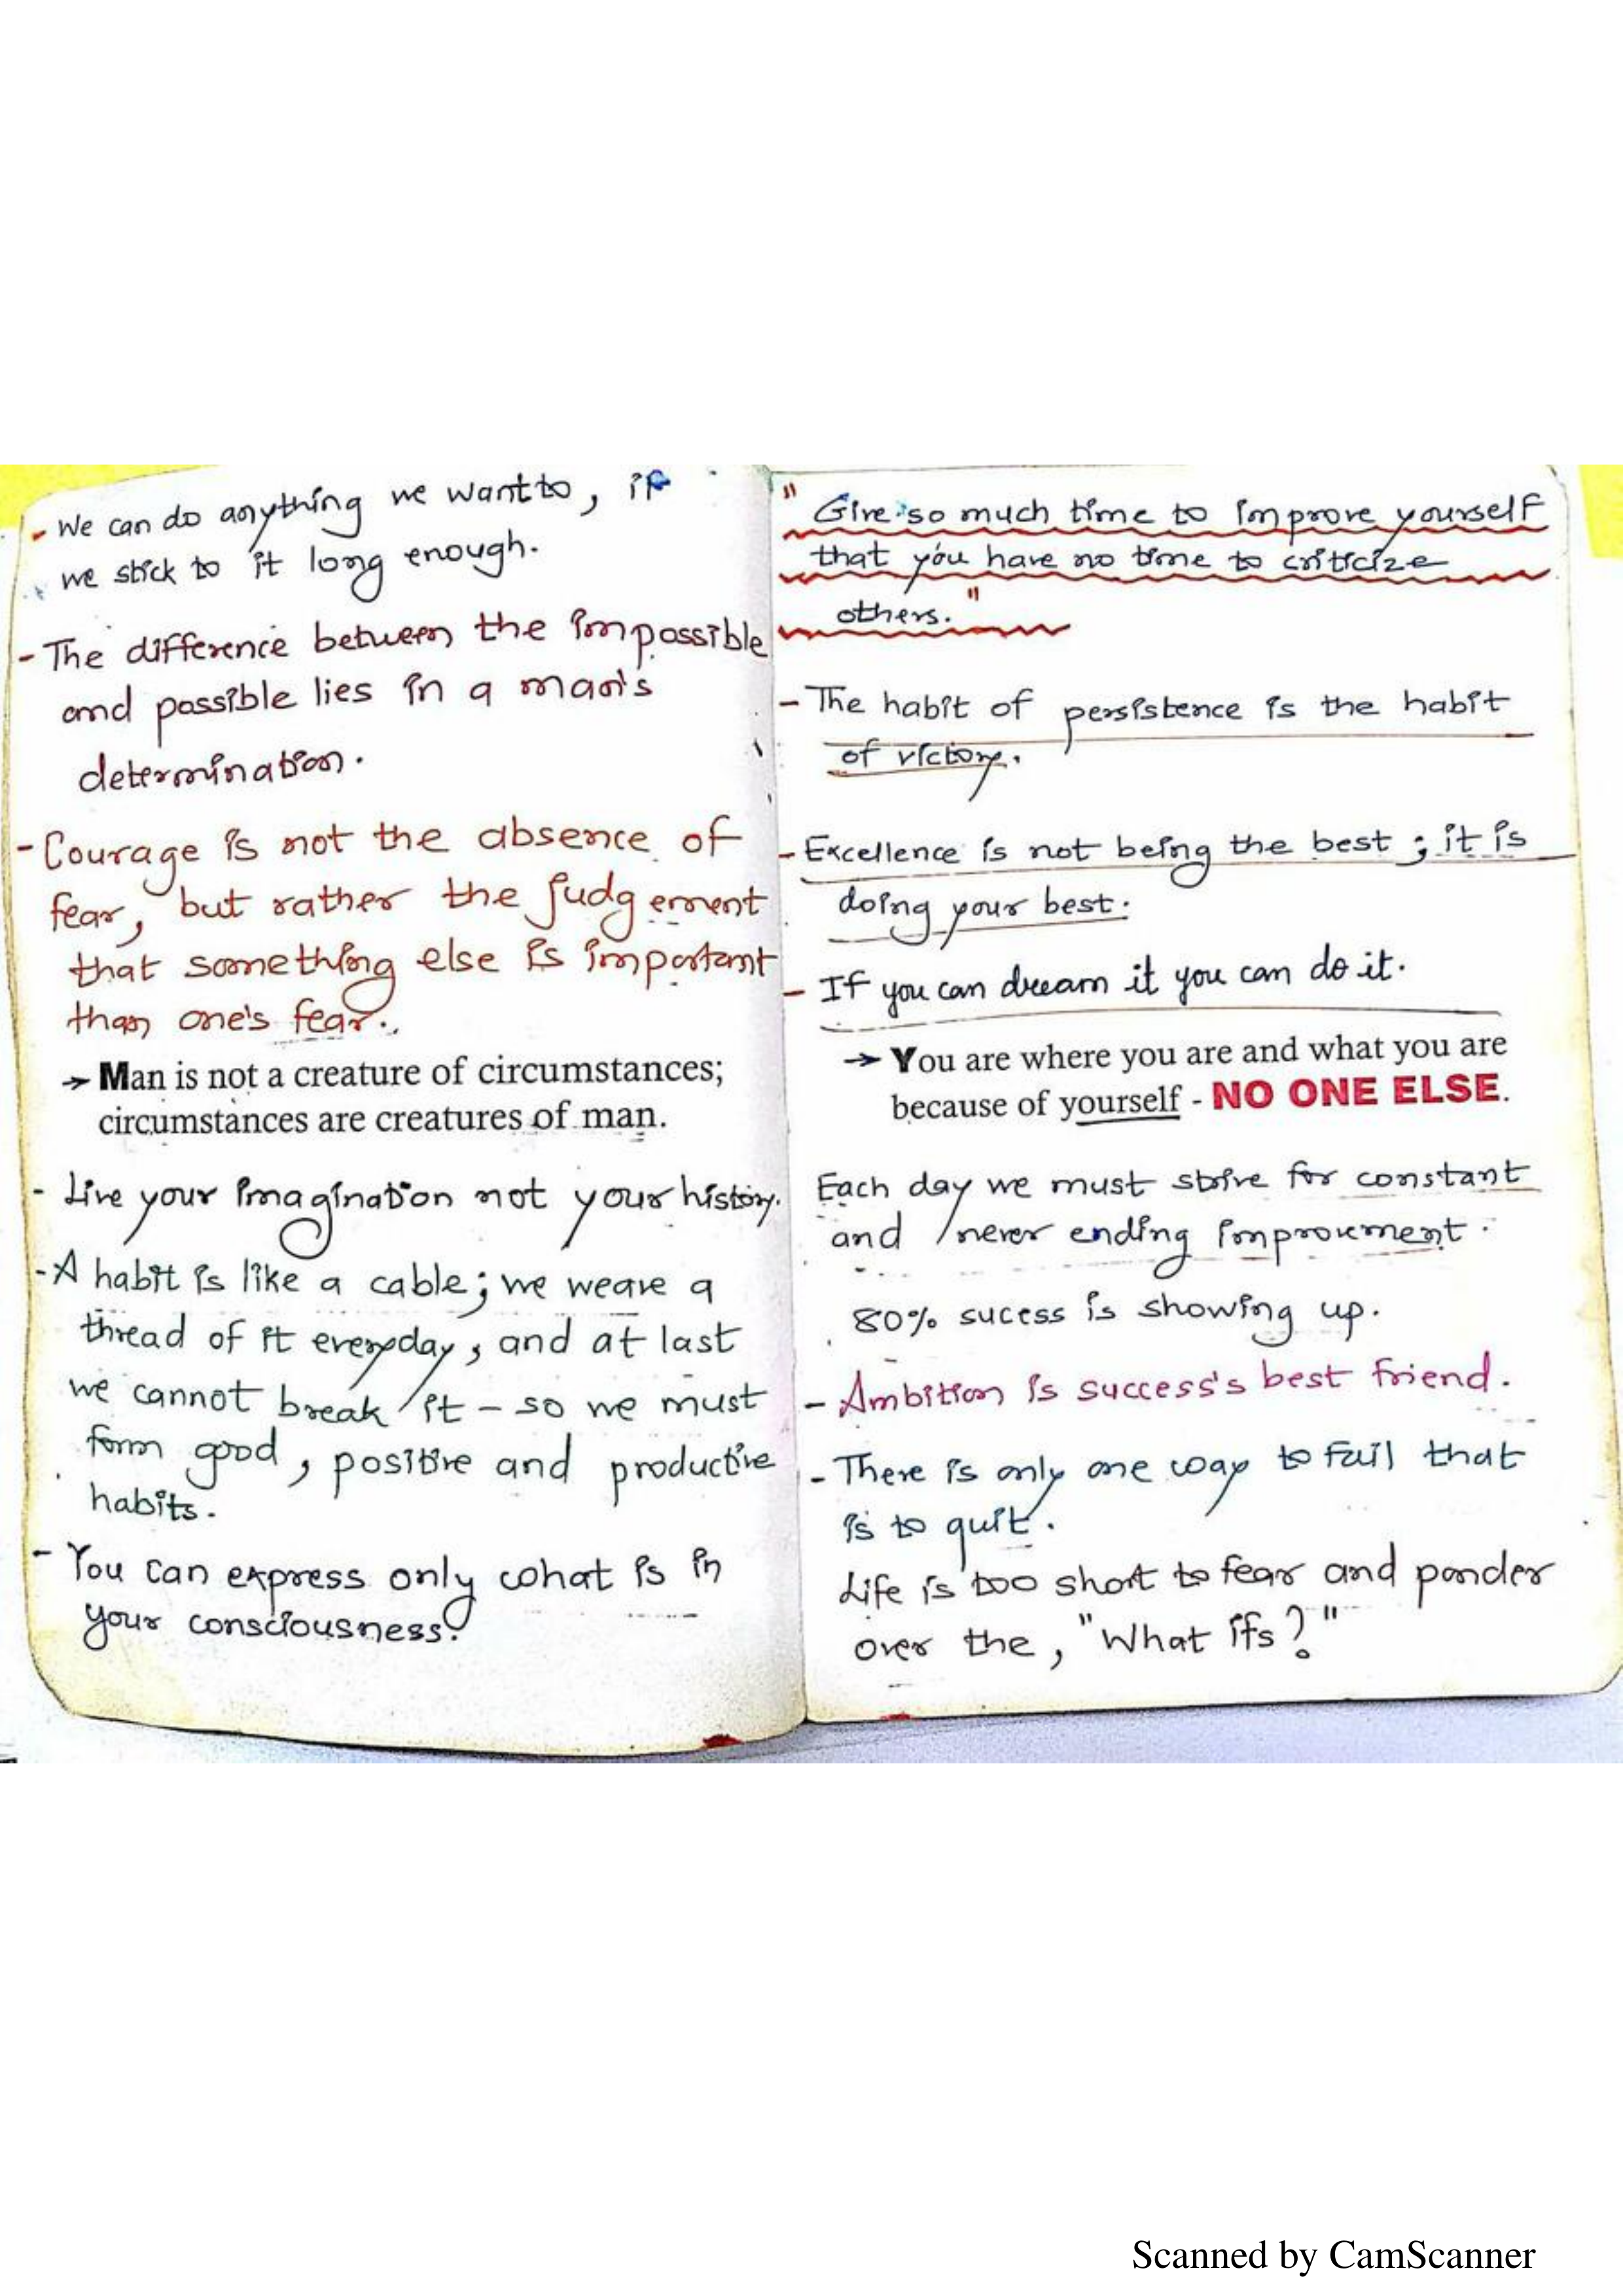 - We can do anything we want to, if
we stick to it long enough.
- The difference between the impossible
and possible lies in a man's
determination.
- Courage is not the absence of
fear, but rather the judgement
that something else is important
than one's fear.
→ Man is not a creature of circumstances;
circumstances are creatures of man.
- Live your imagination not your history.
- A habit is like a cable; we weave a
thread of it everyday, and at last
we cannot break it - so we must
form good, positive and productive
habits.
- You can express only what is in
your consciousness.
" Give so much time to improve yourself
that you have no time to criticize
others. "
- The habit of persistence is the habit
of victory.
- Excellence is not being the best ; it is
doing your best.
- If you can dream it you can do it.
→ You are where you are and what you are
because of yourself - NO ONE ELSE.
Each day we must strive for constant
and never ending improvement.
80% sucess is showing up.
- Ambition is success's best friend.
- There is only one way to fail that
is to quit.
Life is too short to fear and ponder
over the, "What ifs?"
Scanned by CamScanner